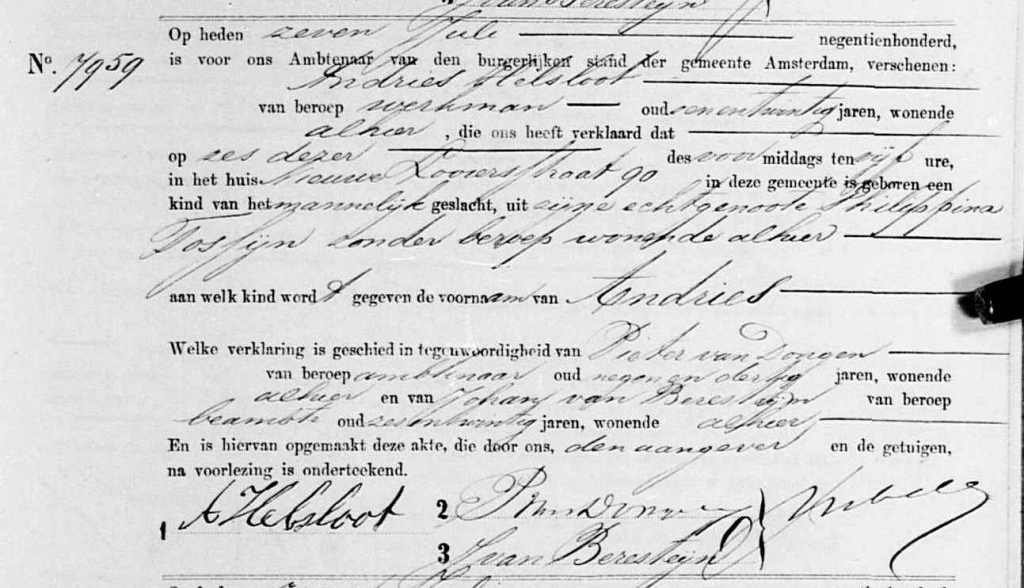 J van Beresteyn
Op heden zeven Juli negentienhonderd,
No. 7959 is voor ons Ambtenaar van den burgerlijken stand der gemeente Amsterdam, verschenen:
Andries Helsloot
van beroep werkman oud een en twintig jaren, wonende
alhier, die ons heeft verklaard dat
op zes dezer des voormiddags ten vijf ure,
in het huis Nieuwe Looiersstraat 90 in deze gemeente is geboren een
kind van het mannelijk geslacht, uit zijne echtgenoote Philippina
Tossijn zonder beroep wonende alhier
aan welk kind wordt gegeven de voornaam van Andries
Welke verklaring is geschied in tegenwoordigheid van Pieter van Dongen
van beroep ambtenaar oud negen en dertig jaren, wonende
alhier en van Johan van Beresteijn van beroep
beambte oud zes en twintig jaren, wonende alhier
En is hiervan opgemaakt deze akte, die door ons, den aangever en de getuigen,
na voorlezing is onderteekend.
1 A Helsloot 2 P van Dongen
3 J van Beresteijn